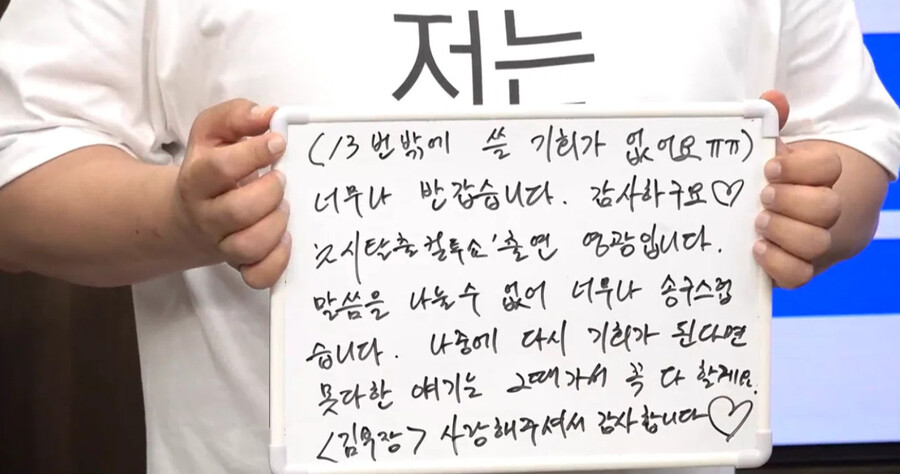 저는
(13번밖에 쓸 기회가 없어요ㅠㅠ)
너무나 반갑습니다. 감사하구요♡
'2시탈출컬투쇼' 출연 영광입니다.
말씀을 나눌수 없어 너무나 송구스럽
습니다. 나중에 다시 기회가 된다면
못다한 얘기는 그때가서 꼭 다 할게요.
<김욱장> 사랑해주셔서 감사합니다♡